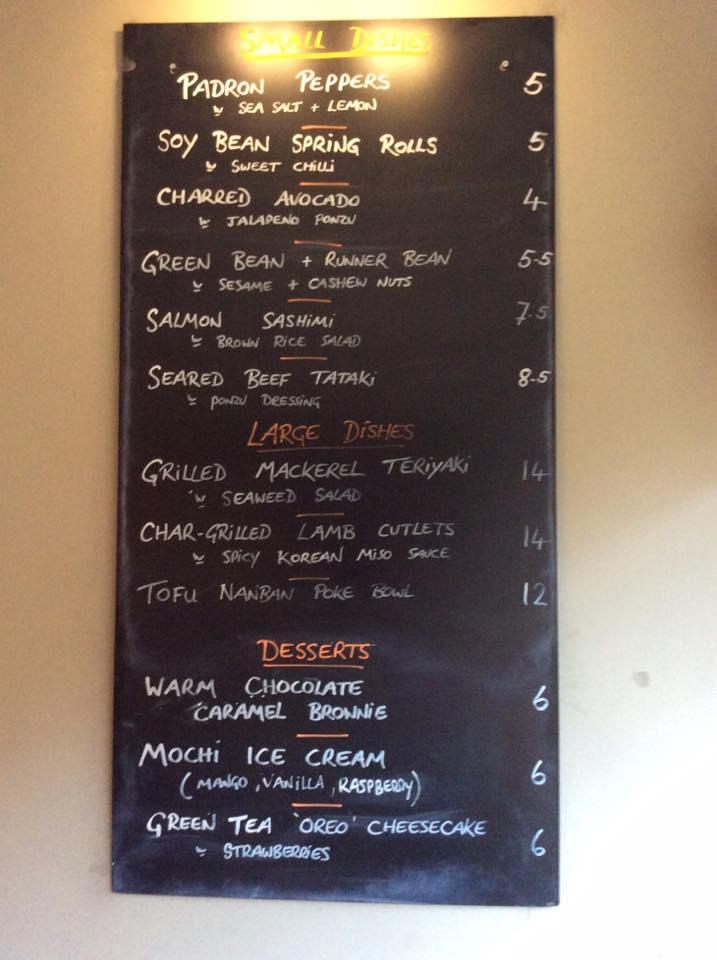 SMALL DISHES
PADRON PEPPERS 5
w SEA SALT + LEMON
SOY BEAN SPRING ROLLS 5
w SWEET CHILLI
CHARRED AVOCADO 4
w JALAPENO PONZU
GREEN BEAN + RUNNER BEAN 5-5
w SESAME + CASHEW NUTS
SALMON SASHIMI 7.5
w BROWN RICE SALAD
SEARED BEEF TATAKI 8-5
w PONZU DRESSING
LARGE DISHES
GRILLED MACKEREL TERIYAKI 14
w SEAWEED SALAD
CHAR-GRILLED LAMB CUTLETS 14
w SPICY KOREAN MISO SAUCE
TOFU NANBAN POKE BOWL 12
DESSERTS
WARM CHOCOLATE
CARAMEL BROWNIE 6
MOCHI ICE CREAM 6
(MANGO, VANILLA, RASPBERRY)
GREEN TEA 'OREO' CHEESECAKE 6
w STRAWBERRIES